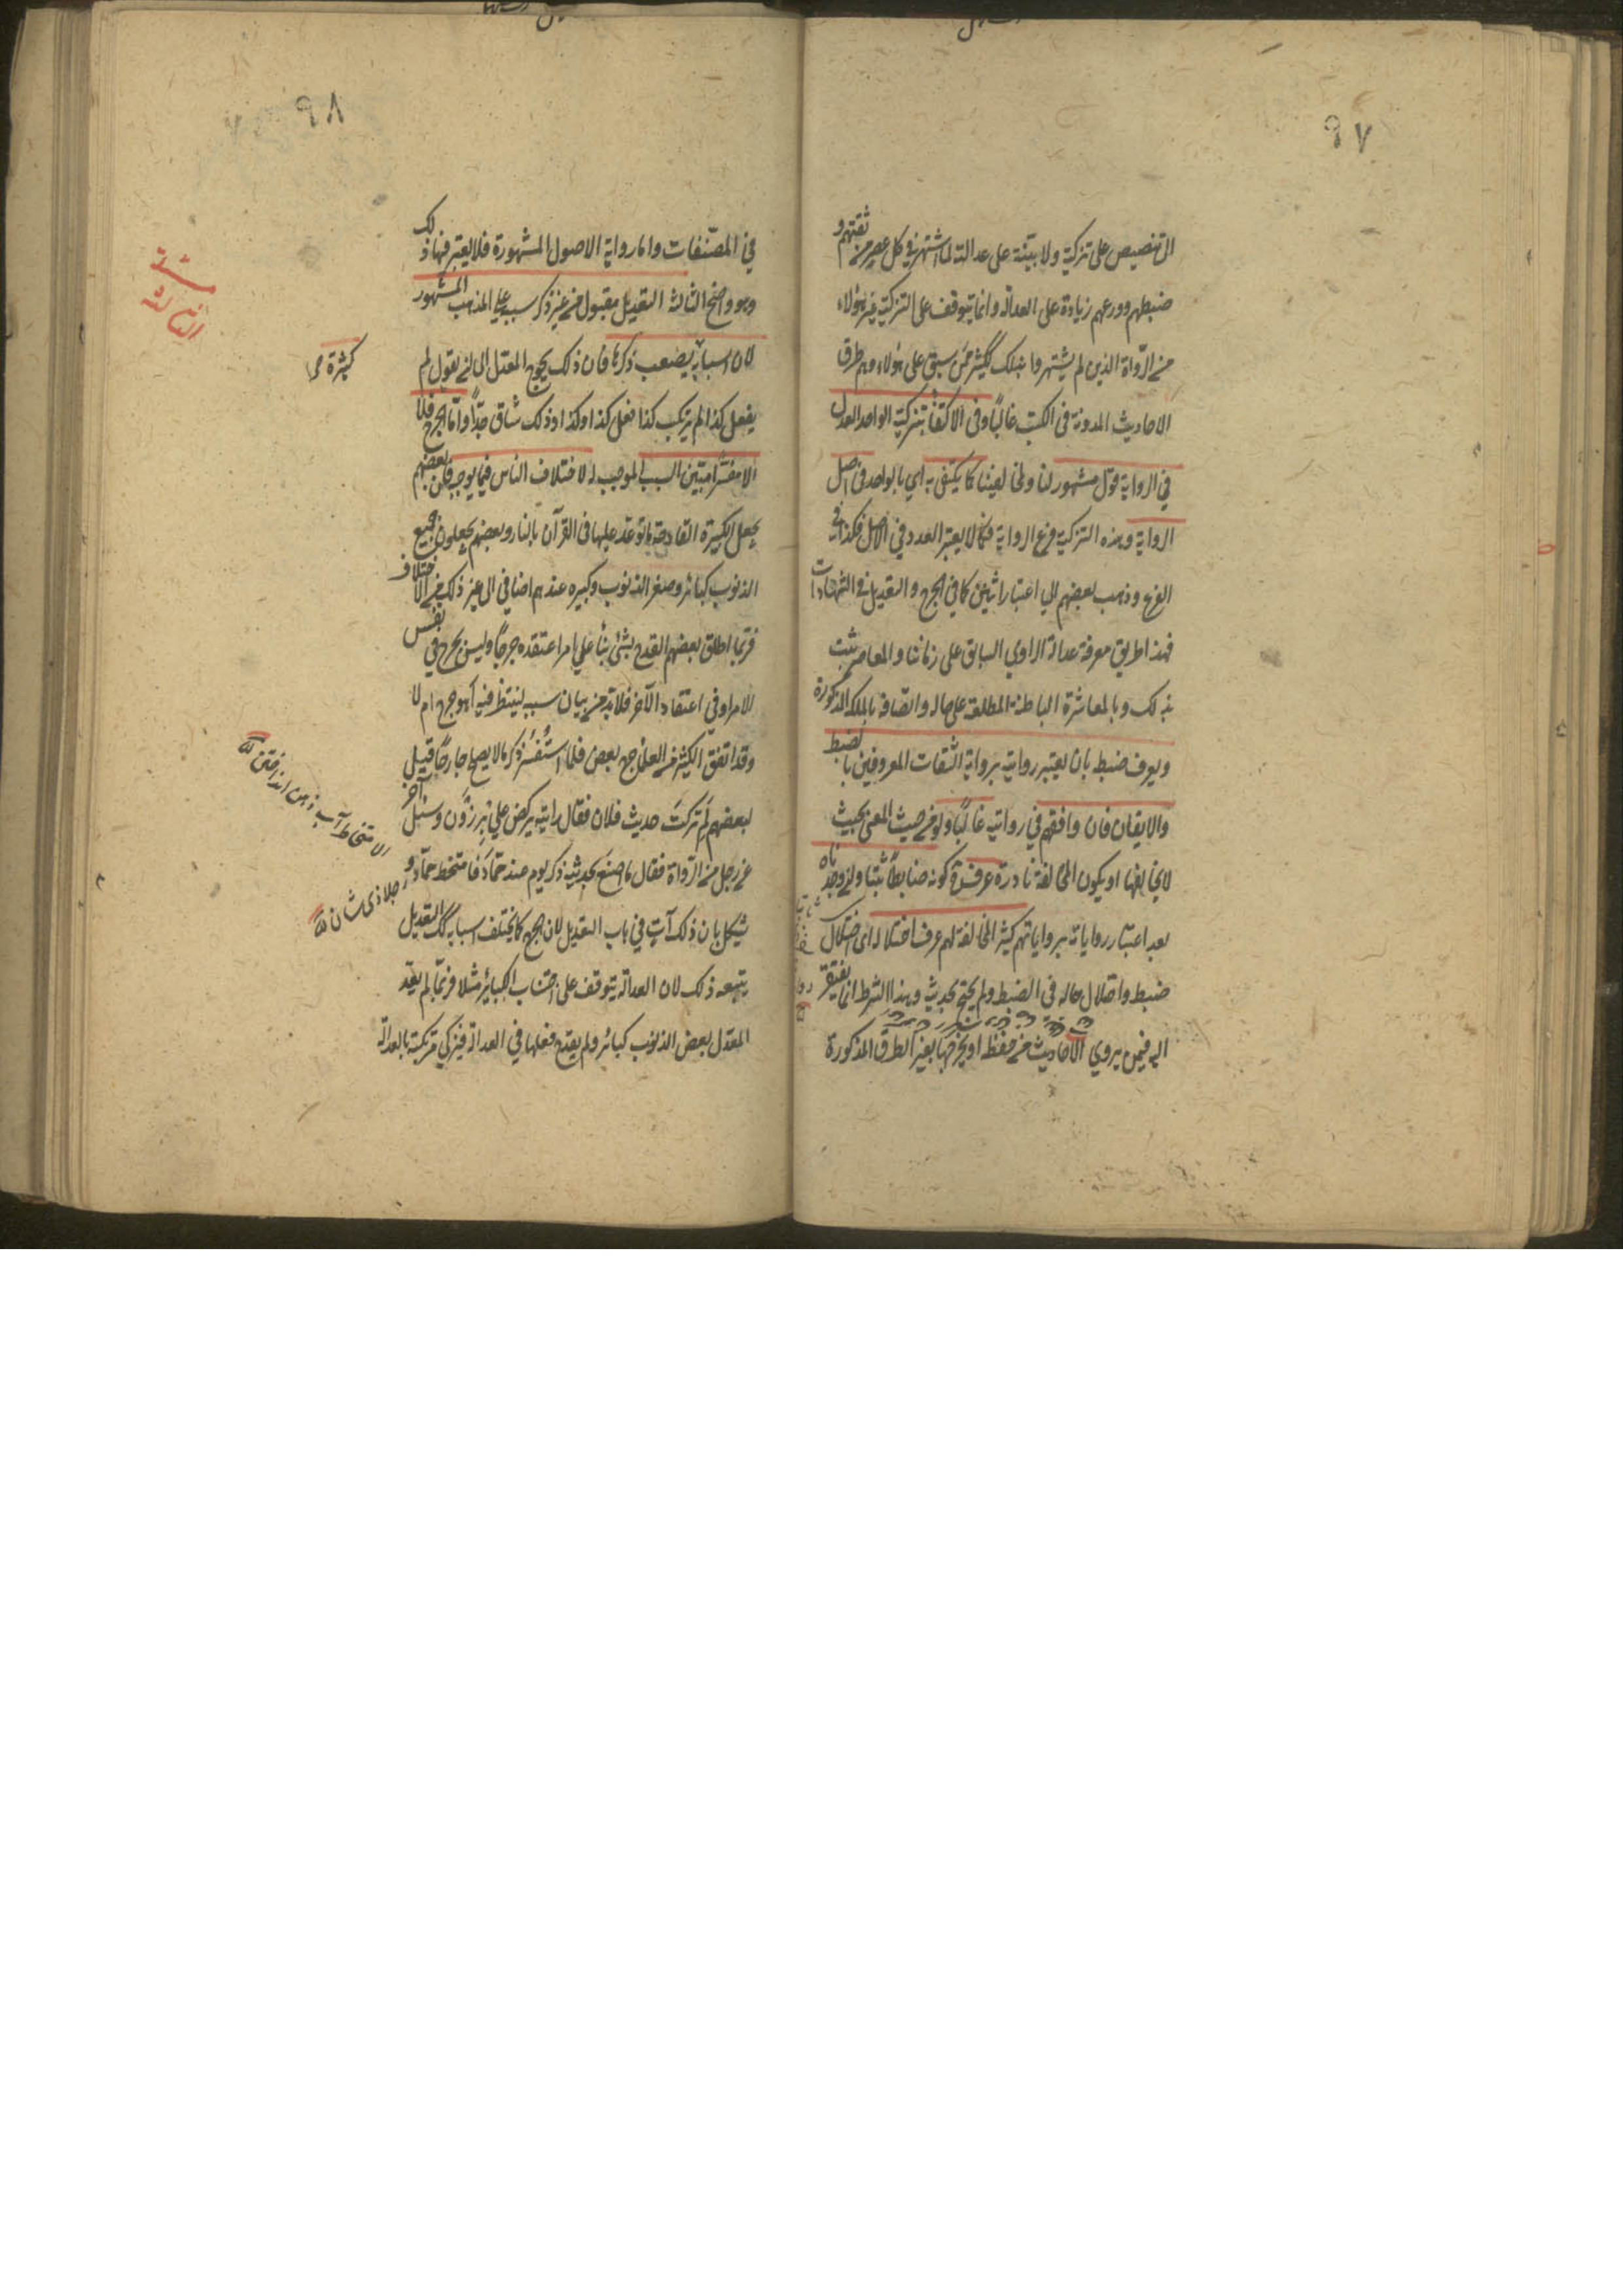 ٩٧
الى تنصيص على تزكية ولا بينة على عدالة لما اشتهر في كل عصر من ثقتهم و
ضبطهم وورعهم زيادة على العدالة وانما يتوقف على التزكية غير هؤلاء
من الرواة الذين لم يشتهروا بذلك ككثير ممن سبق على هؤلاء وهم طرق
الاحاديث المدونة في الكتب غالبا وفي الاكتفاء بتزكية الواحد العدل
في الرواية قول مشهور لنا ولمخالفينا كما يكتفى به اي بالواحد في اصل
الرواية وهذه التزكية فرع الرواية فكما لا يعتبر العدد في الاصل فكذا في
الفرع وذهب بعضهم الي اعتبار اثنين كما في الجرح والتعديل في الشهادات
فهذا طريق معرفة عدالة الراوي السابق على زماننا والمعاصر يثبت
بذلك وبالمعاشرة الباطنة المطلعة على حاله واتصافه بالملكة المذكورة
ويعرف ضبطه بان يعتبر روايته برواية الثقات المعروفين بالضبط
والاتقان فان وافقهم في رواياته غالبا ولو من حيث المعنى بحيث
لا يخالفها او يكون المخالفة نادرة عرف كونه ضابطا ثبتا وان وجدناه
بعد اعتبار رواياته برواياتهم كثير المخالفة لهم عرف اختلاله اي اختلال
ضبطه واختلال حاله في الضبط ولم يحتج بحديثه وهذا الشرط انما يفتقر
اليه فيمن يروي الاحاديث من حفظه او يخرجها بغير الطرق المذكورة
٩٨
في المصنفات واما رواية الاصول المشهورة فلا يعتبر فيها ذلك
وهو واضح الثالثة التعديل مقبول من غير ذكر سببه على المذهب المشهور
لان اسبابه يصعب ذكرها فان ذلك يحوج المعدل الى ان يقول لم
يفعل كذا لم يرتكب كذا فعل كذا وكذا وذلك شاق جدا واما الجرح فلا
الا مفسرا مبين السبب الموجب له لاختلاف الناس فيما يوجبه فان بعضهم
يجعل الكبيرة القادحة ما توعد عليها في القرآن بالنار وبعضهم يجعلون جميع
الذنوب كبائر وصغر الذنوب وكبره عندهم اضافي الى غير ذلك من الاختلاف
فربما اطلق بعضهم القدح بشئ بناء على امر اعتقده جرحا وليس بجرح في نفس
الامر او في اعتقاد الآخر فلا بد من بيان سببه لينظر فيه أهو جرح ام لا
وقد اتفق لكثير من العلماء جرح بعض فلما استفسر ذكر ما لا يصلح جارحا قيل
لبعضهم لم تركت حديث فلان فقال رايته يركض على برذون وسئل آخر
عن رجل من الرواة فقال ما اصنع بحديثه ذكر يوم عند حماد فامتخط حماد و
يشكل بان ذلك آت في باب التعديل لان الجرح كما يختلف اسبابه كك التعديل
يتبعه ذلك لان العدالة يتوقف على اجتناب الكبائر مثلا فربما لم يعد
المعدل بعض الذنوب كبائر ولم يقدح فعلها في العدالة فيزكي مرتكبه بالعدالة
الثالثة
كثيرة
الامتخاط آب بينى انداختن